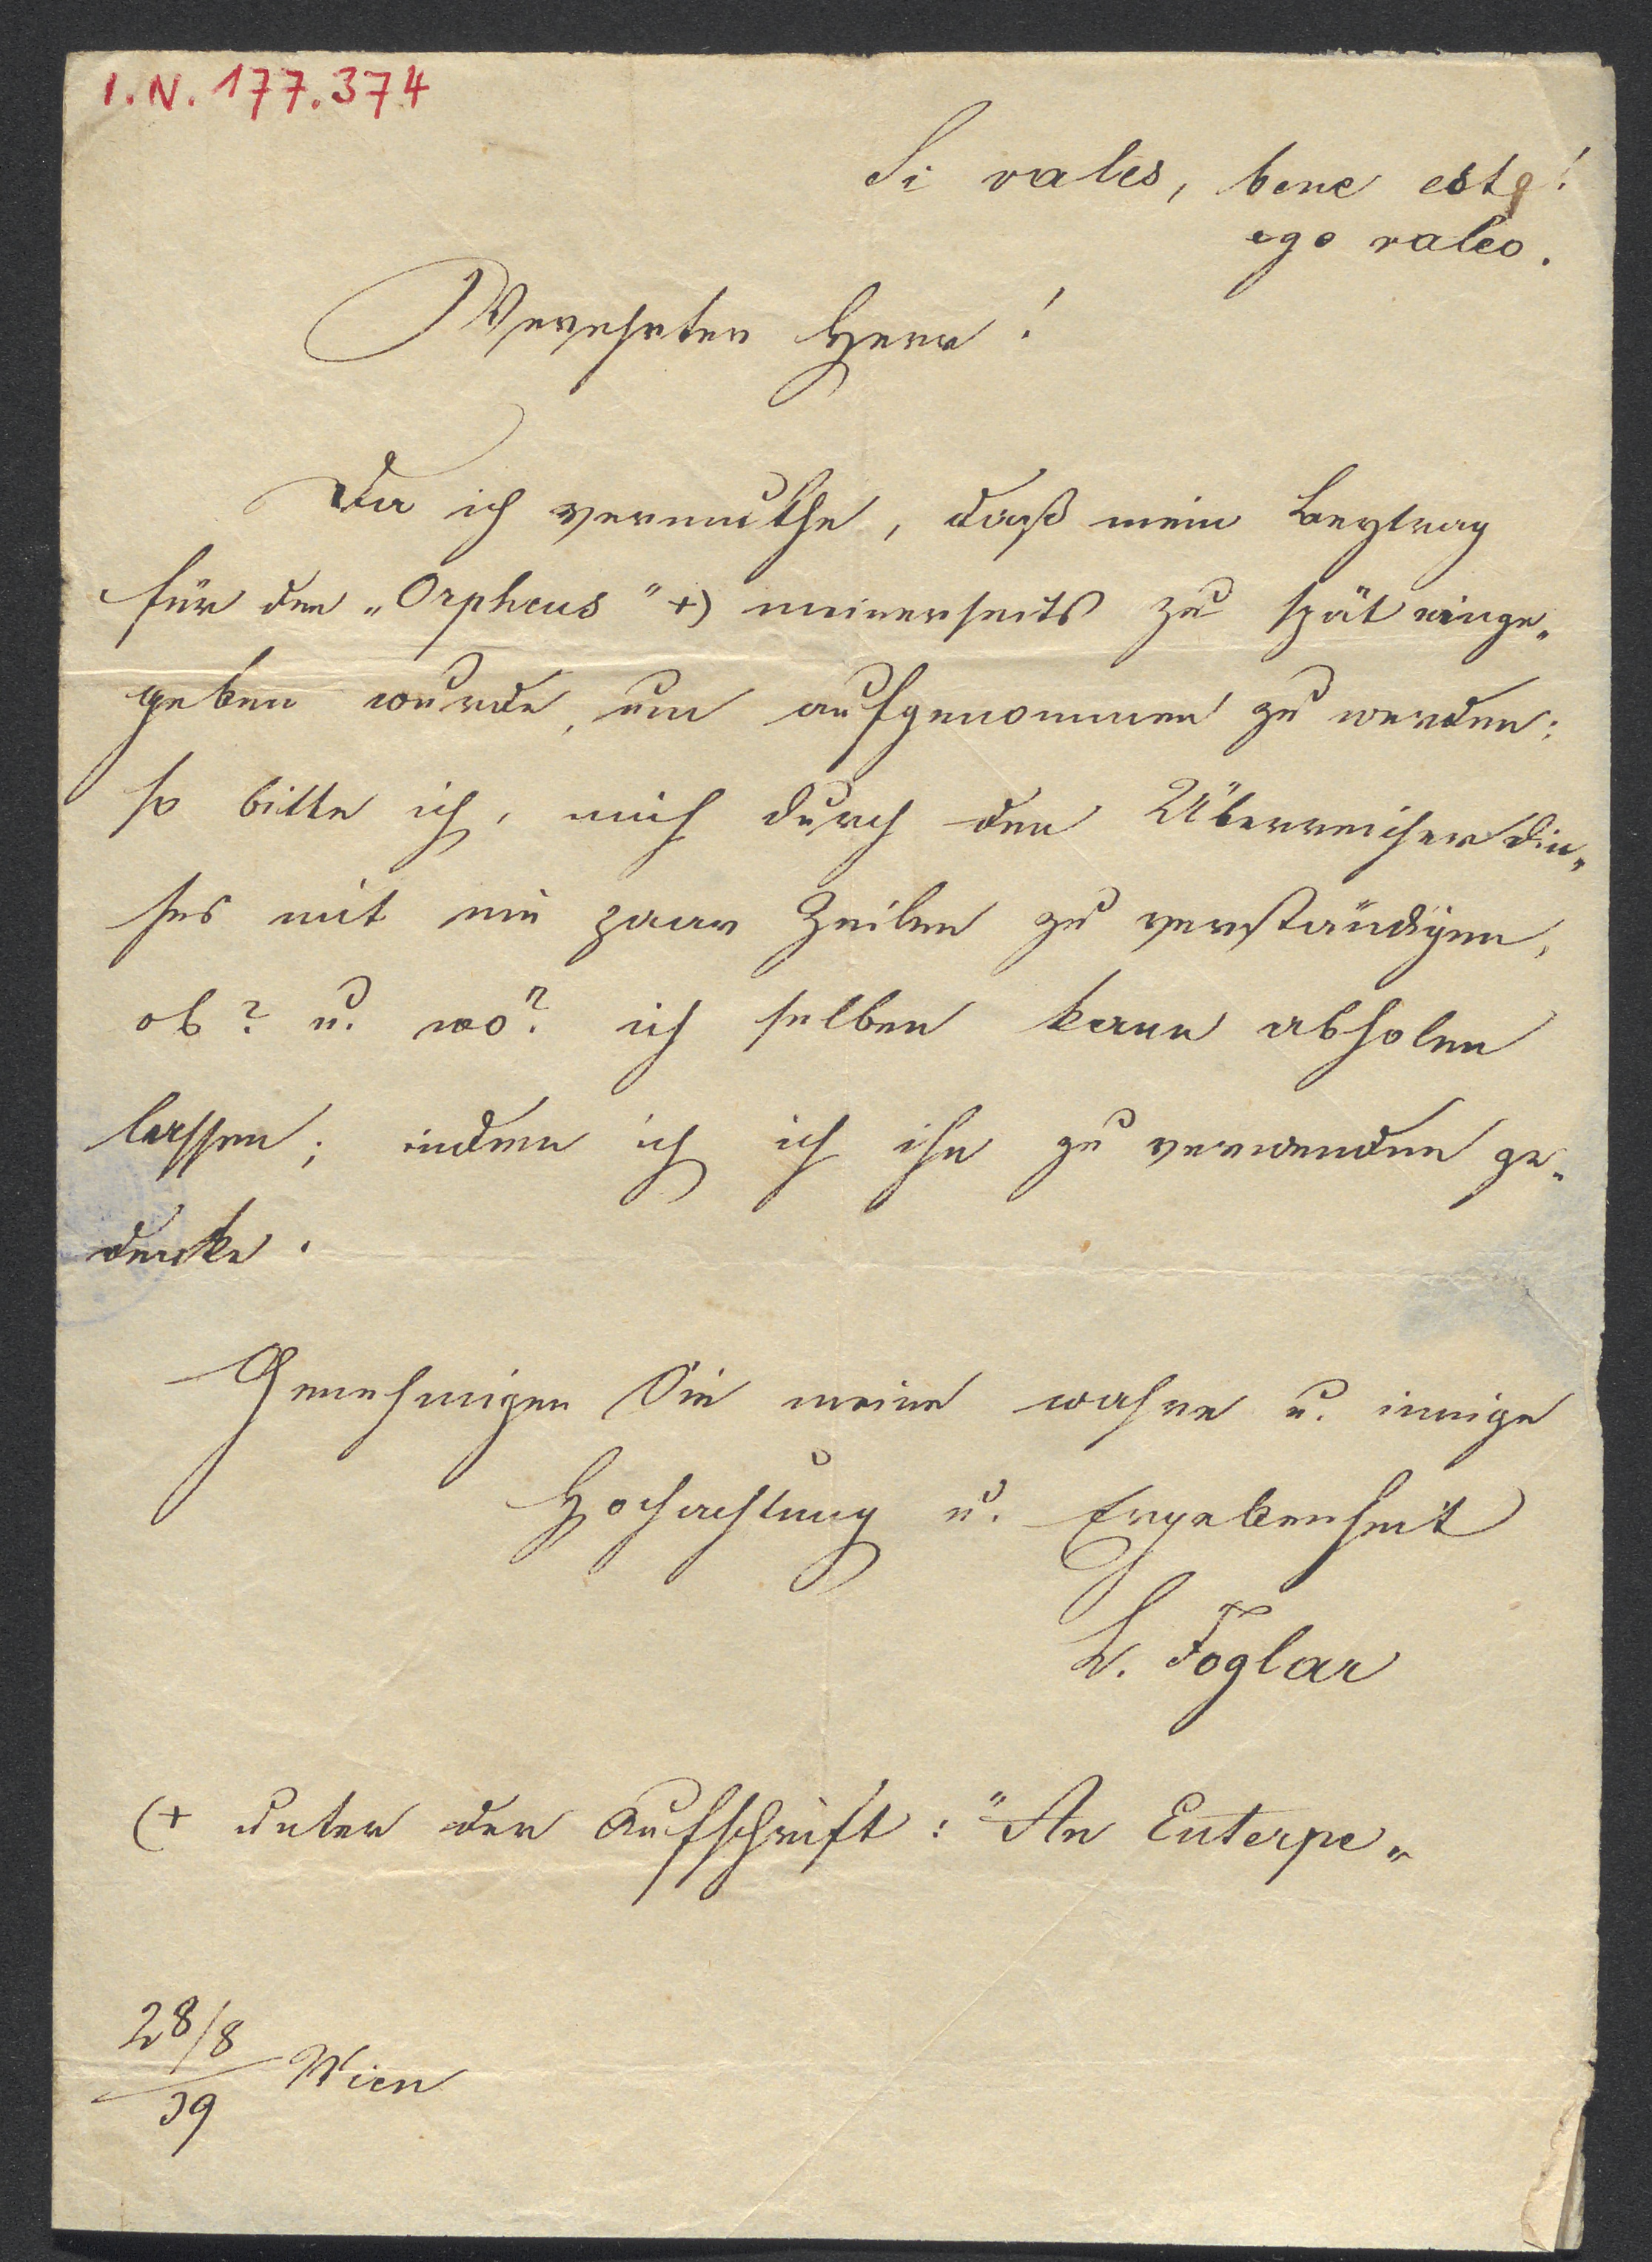 I.N. 177.374
Si vales, bene est!
ego valeo.
Verehrter Herr!
Da ich vermuthe, daß mein Beytrag
für den „Orpheus" +) meinerseits zu spät einge„
geben wurde, um aufgenommen zu werden;
so bitte ich, mich durch den Überreicher die„
ses mit ein paar Zeilen zu verständigen,
ob? u. wo? ich selben kann abholen
lassen; indem ich ich ihn zu verwenden ge„
denke.
Genehmigen Sie meine wahre u. innige
Hochachtung u. Ergebenheit
L. Foglar
(+ unter der Aufschrift: "An Euterpe„
28/8
39 Wien